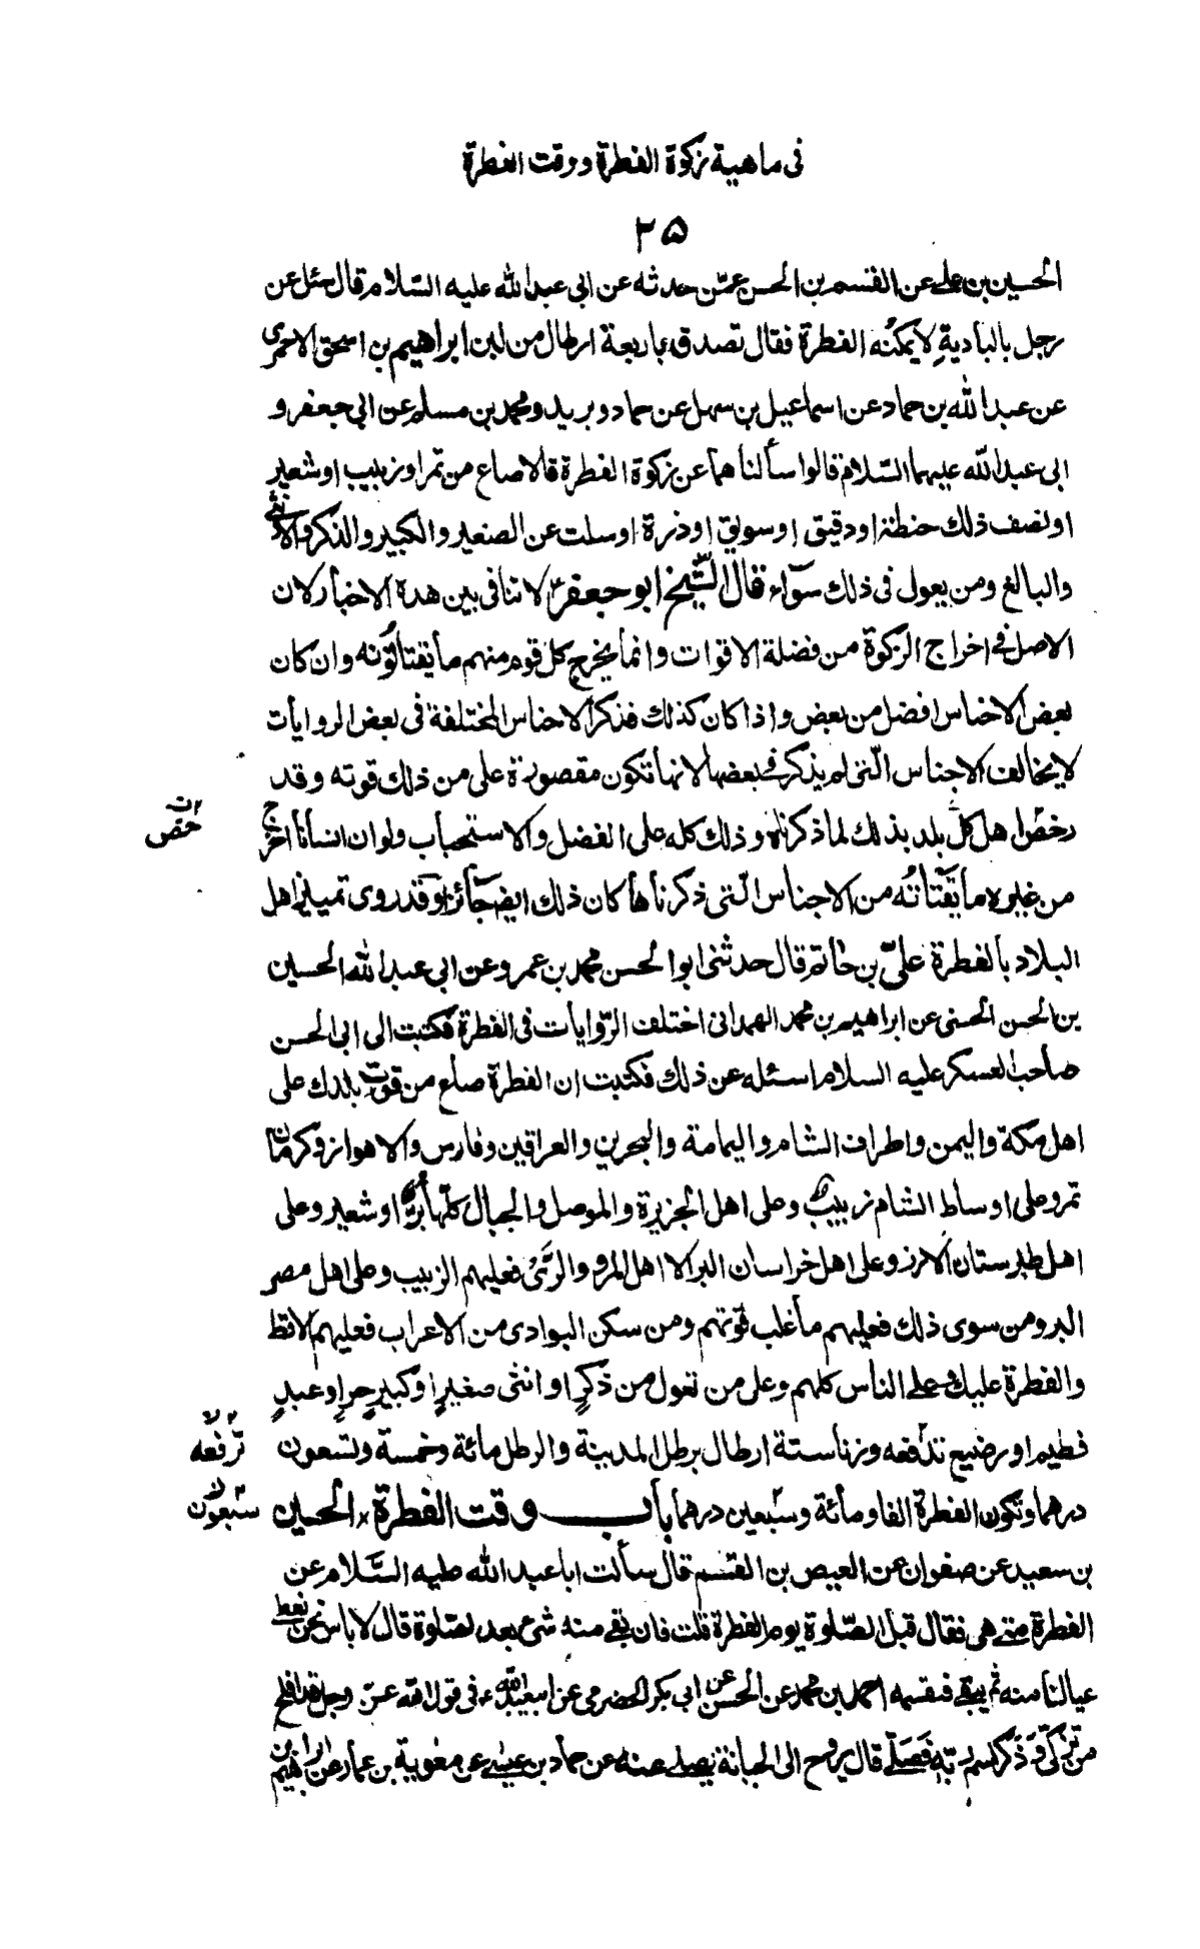 فى ماهية زكوة الفطرة و وقت الفطرة
٢٥
الحسين بن على عن القسم بن الحسن عمّن حدثه عن ابى عبد الله عليه السّلام قال سئل عن
رجل بالباديةِ لا يمكنُه الفطرة فقال تصدق باربعة ارطال من لبن ابراهيم بن اسحق الاحمرى
عن عبد الله بن حماد عن اسماعيل بن سهل عن حماد و بريد و محمد بن مسلم عن ابى جعفر و
ابى عبد الله عليهما السّلام قالوا سألناهما عن زكوة الفطرة قالا صاع من تمر او زبيب او شعير
او نصف ذلك حنطة او دقيق او سويق او ذرة او سلت عن الصغير و الكبير و الذكر و الانثى
والبالغ ومن يعول فى ذلك سوآء قال الشّيخ ابو جعفرٌ لا تنافى بين هذه الاخبار لان
الاصل فى اخراج الزكوة من فضلة الاقوات وانما يخرج كل قوم منهم ما يقتاتُونه وان كان
بعض الاجناس افضل من بعض واذا كان كذلك فذكر الاجناس المختلفة فى بعض الروايات
لا يخالف الاجناس الّتى لم يذكر فى بعضها لانها تكون مقصورة على من ذلك قوته و قد
رخصّ اهل كلّ بلد بذلك لما ذكرناه و ذلك كله على الفضل والاستحباب ولو ان انسانا اخرج
خصّ
من غيره ما يَقتاتُه من الاجناس الّتى ذكرناها كان ذلك ايضا جآئزا و قد روى تمييز اهل
البلاد بالفطرة علىّ بن حاتم قال حدثنى ابو الحسن محمد بن عمرو عن ابى عبد الله الحسين
بن الحسن الحسنى عن ابراهيم بن محمد الهمدانى اختلف الرّوايات فى الفطرة فكتبت الى ابى الحسن
صاحب العسكر عليه السلام اسئله عن ذلك فكتبت ان الفطرة صاع من قوت بلدك على
اهل مكة واليمن واطراف الشام واليمامة والبحرين والعراقين وفارس والاهواز وكرمان
تمر وعلى اوساط الشام زبيب وعلى اهل الجزيرة والموصل والجبال كلّها بُرٌّ او شعير وعلى
اهل طبرستان الارز وعلى اهل خراسان البر الا اهل المرو والرّىّ فعليهم الزبيب وعلى اهل مصر
البر ومن سوى ذلك فعليهم ما غلب قُوتهم ومن سكن البوادى من الاعراب فعليهم الاقط
والفطرة عليك وعلى الناس كلهم وعلى من تعول من ذكرٍ او انثى صغيرٍ او كبيرٍ حرٍ او عبدٍ
فطيم او رضيع تدفعه وزنا ستة ارطال برطل المدينة والرطل مائة وخمسة وتسعون
ترفعه
درهما وتكون الفطرة الفا ومائة وسبعين درهما باب وقت الفطرة الحسين
سبعون
بن سعيد عن صفوان عن العيص بن القسم قال سألت ابا عبد الله عليه السَّلام عن
الفطرة متى هى فقال قبل الصّلوة يوم الفطرة قلت فان بقى منه شئ بعد الصّلوة قال لا باس نحن نعطى
عيالنا منه ثم يبقى فنقسمه احمد بن محمد عن الحسن عن ابى بكر الحضرمى عن ابيعبد الله ع فى قول الله عزّ وجل قد افلح
من تزكّى وَ ذَكَر اسم ربّه فَصَلّى قال يروح الى الجبانة فيصلى عنه عن حماد بن عيسى عن معوية بن عمار عن ابراهيم بن